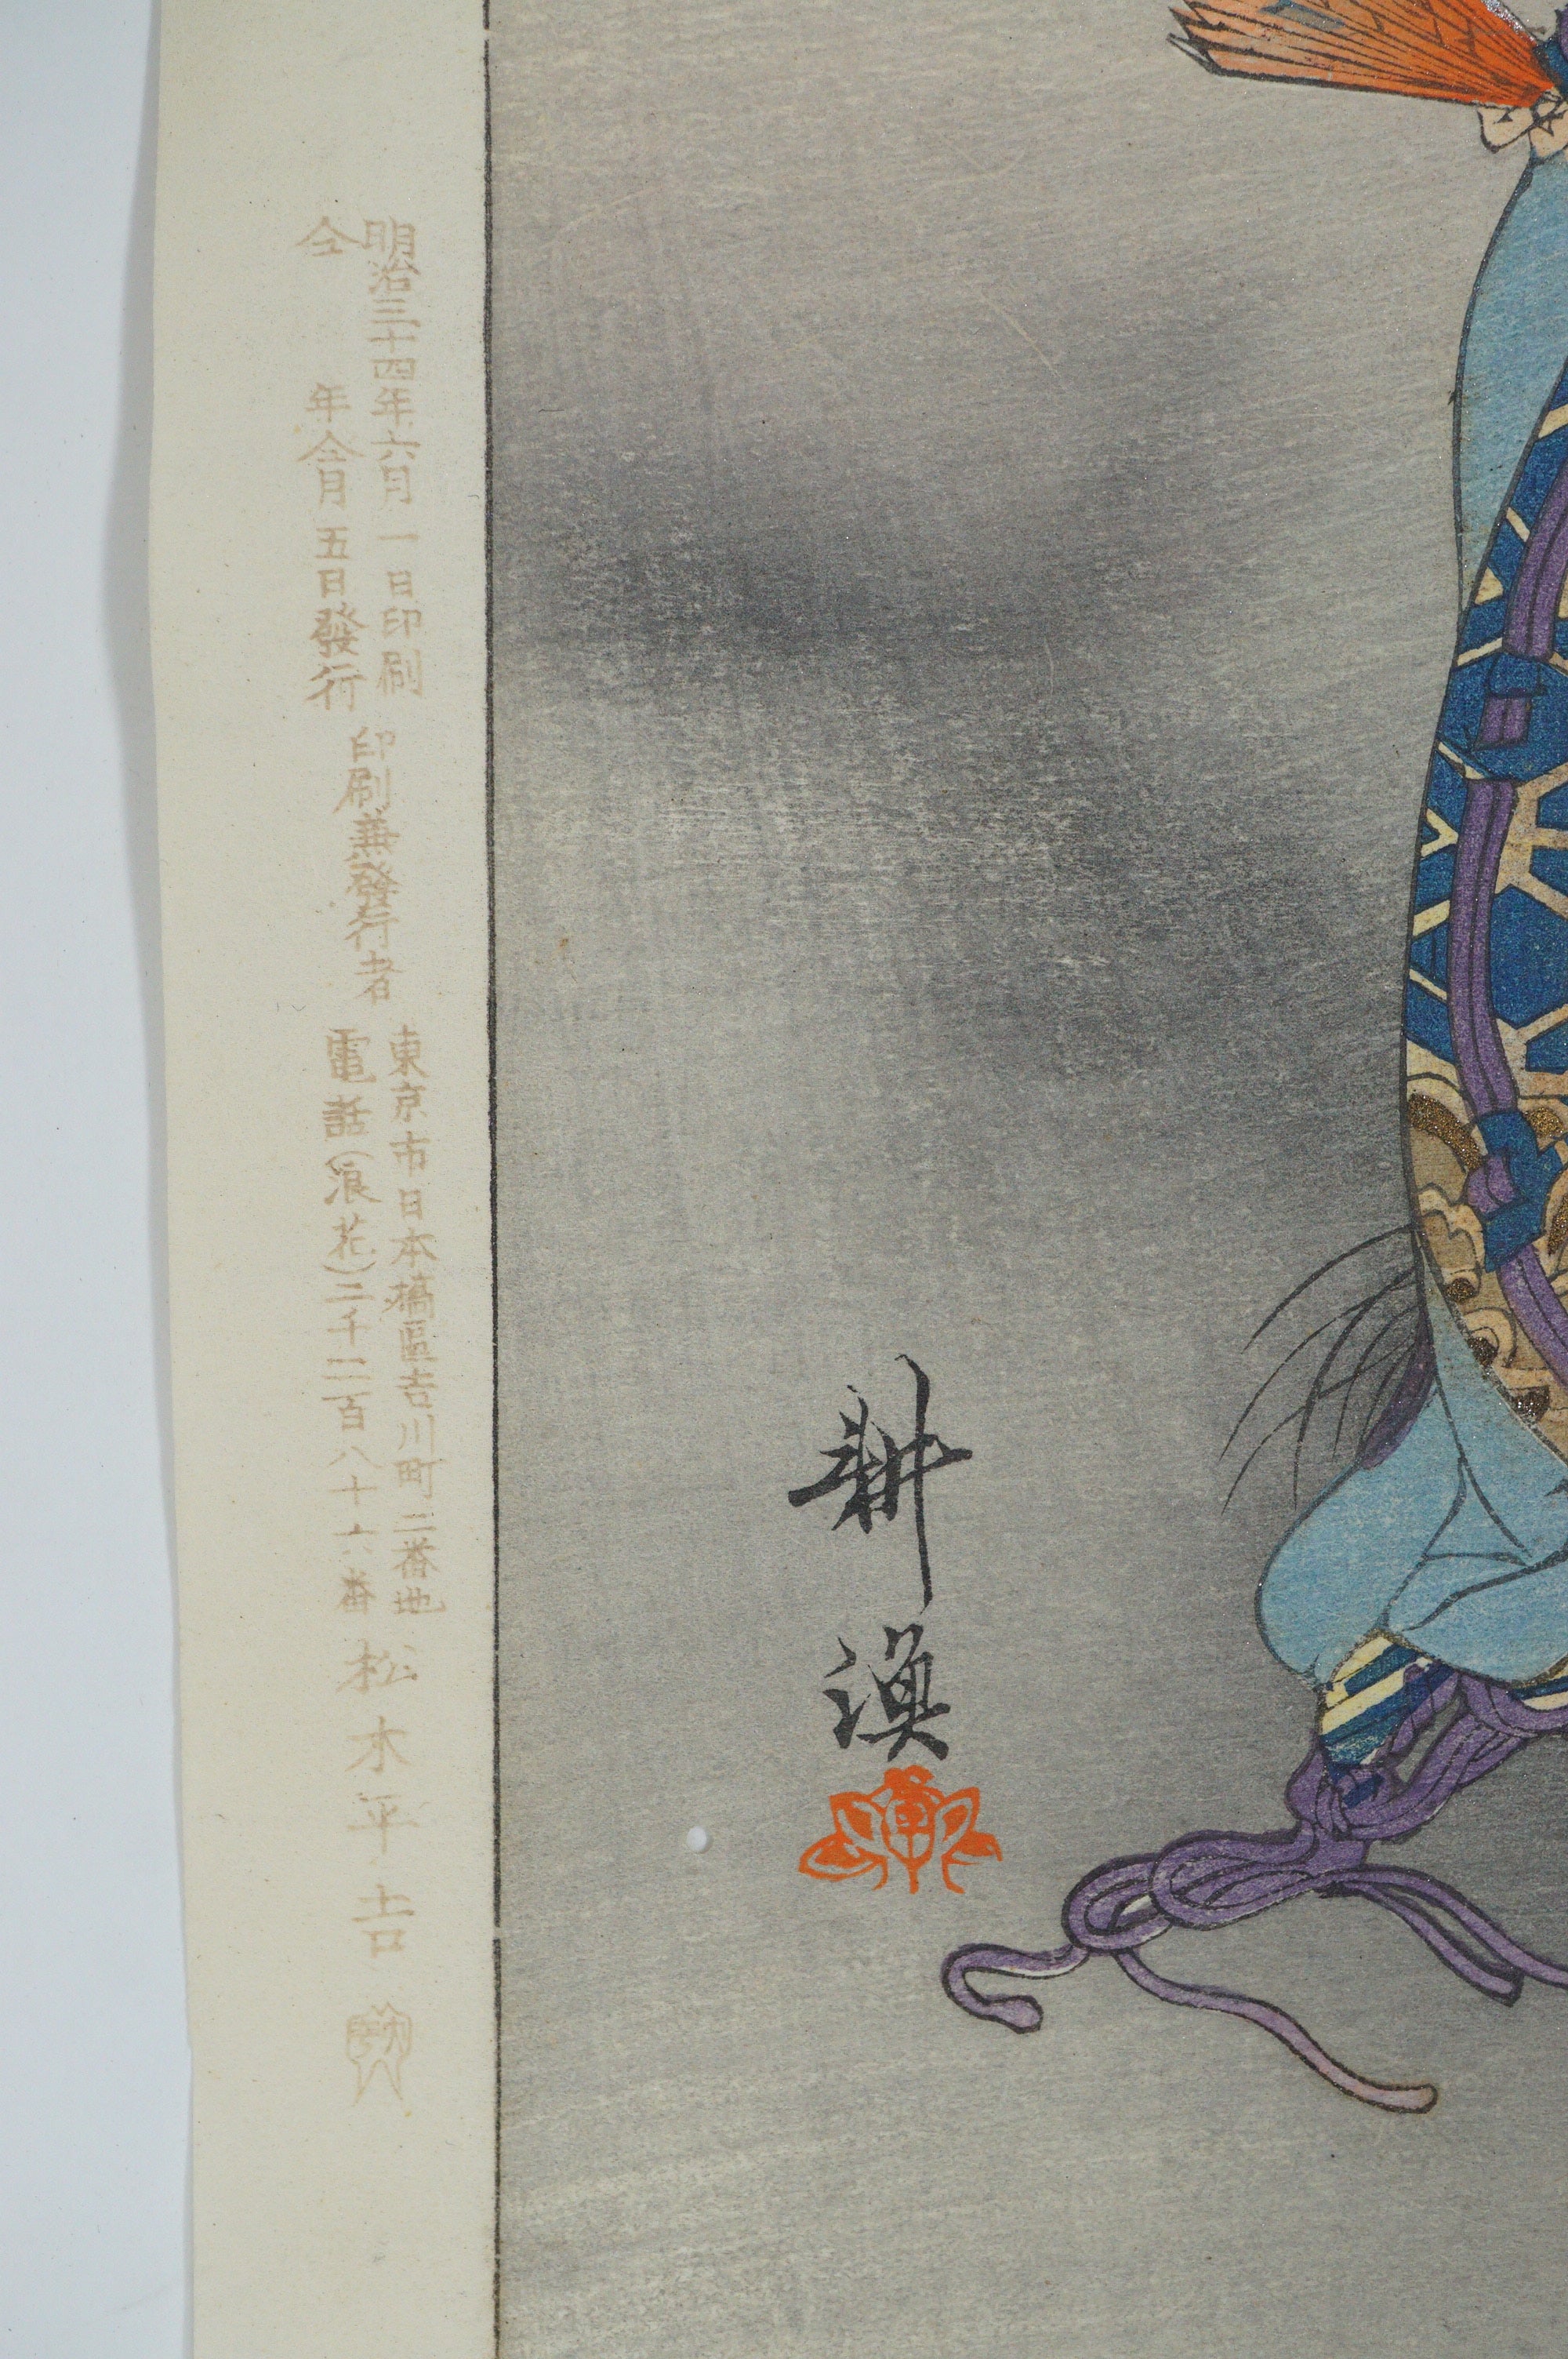 明治三十四年六月一日印刷
仝年仝月五日發行
印刷兼發行者
東京市日本橋區吉川町二番地
電話（浪花）二千二百八十六番
松木平吉
耕漁